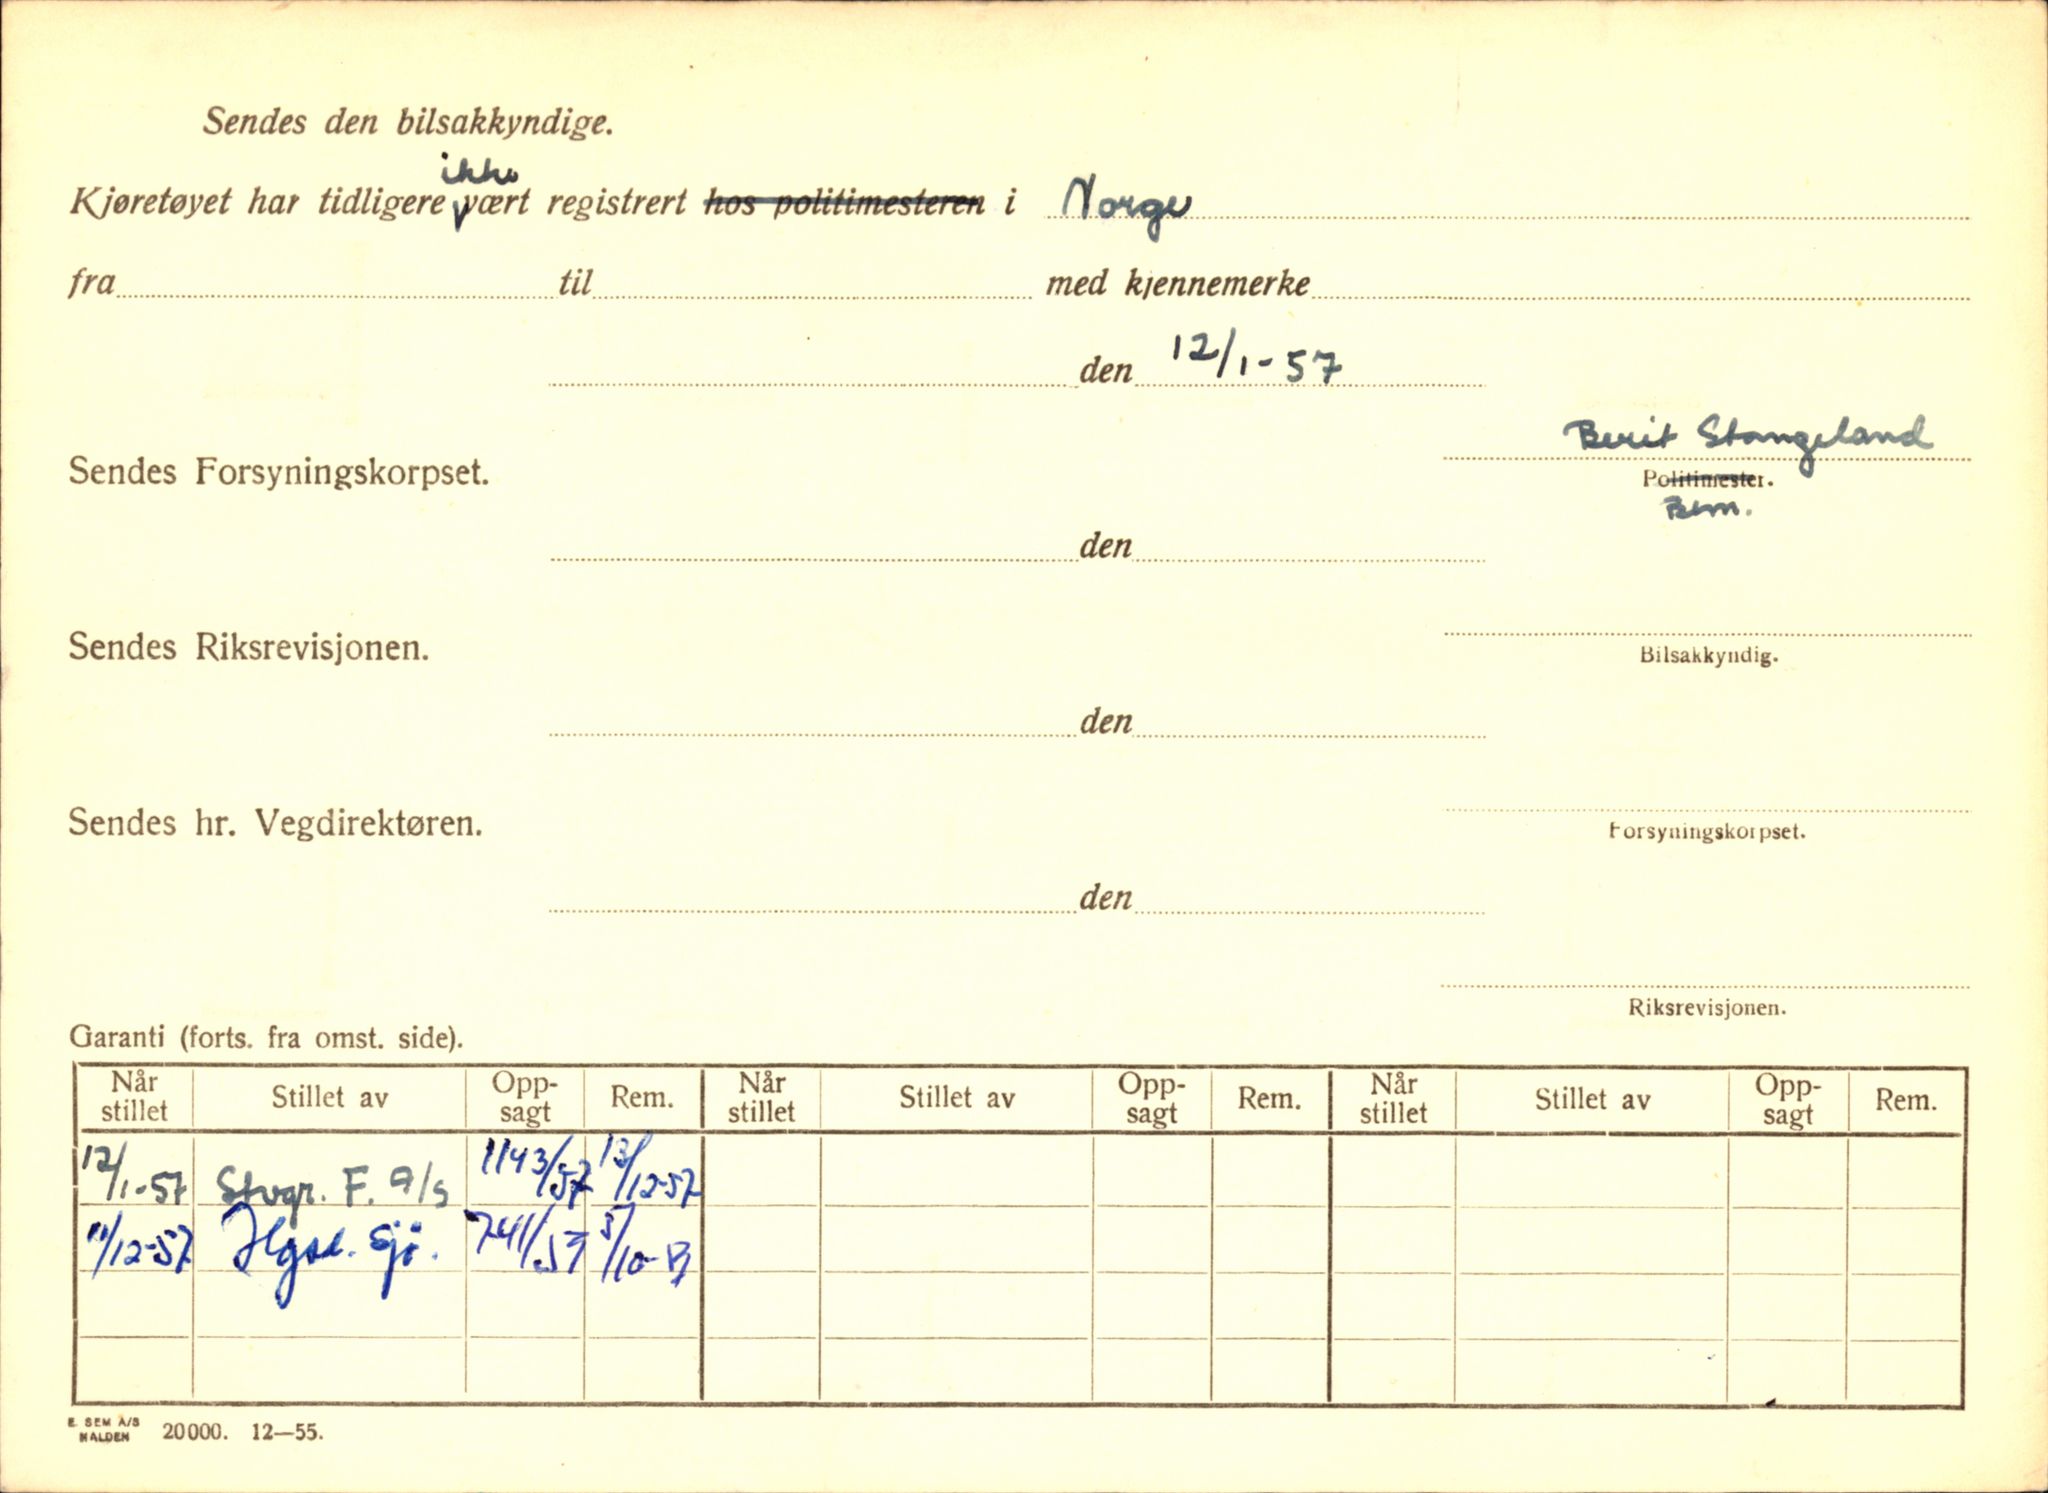 Sendes den bilsakkyndige.
ikke
Kjøretøyet har tidligere vært registrert hos politimesteren i Norge
fra til med kjennemerke
den 12/1-57
Berit Stangeland
Sendes Forsyningskorpset.
Politimester.
den
Sendes Riksrevisjonen.
Bilsakkyndig.
den
Sendes hr. Vegdirektøren.
Forsyningskorpset.
den
Riksrevisjonen.
Garanti (forts. fra omst. side).
Når stillet Stillet av Opp-sagt Rem. Når stillet Stillet av Opp-sagt Rem. Når stillet Stillet av Opp-sagt Rem.
12/1-57 Stvgr. F. A/S 1143/57 13/12-57
11/12-57 Sjø. 741/
E. SEM A/S
HALDEN 20000. 12—55.